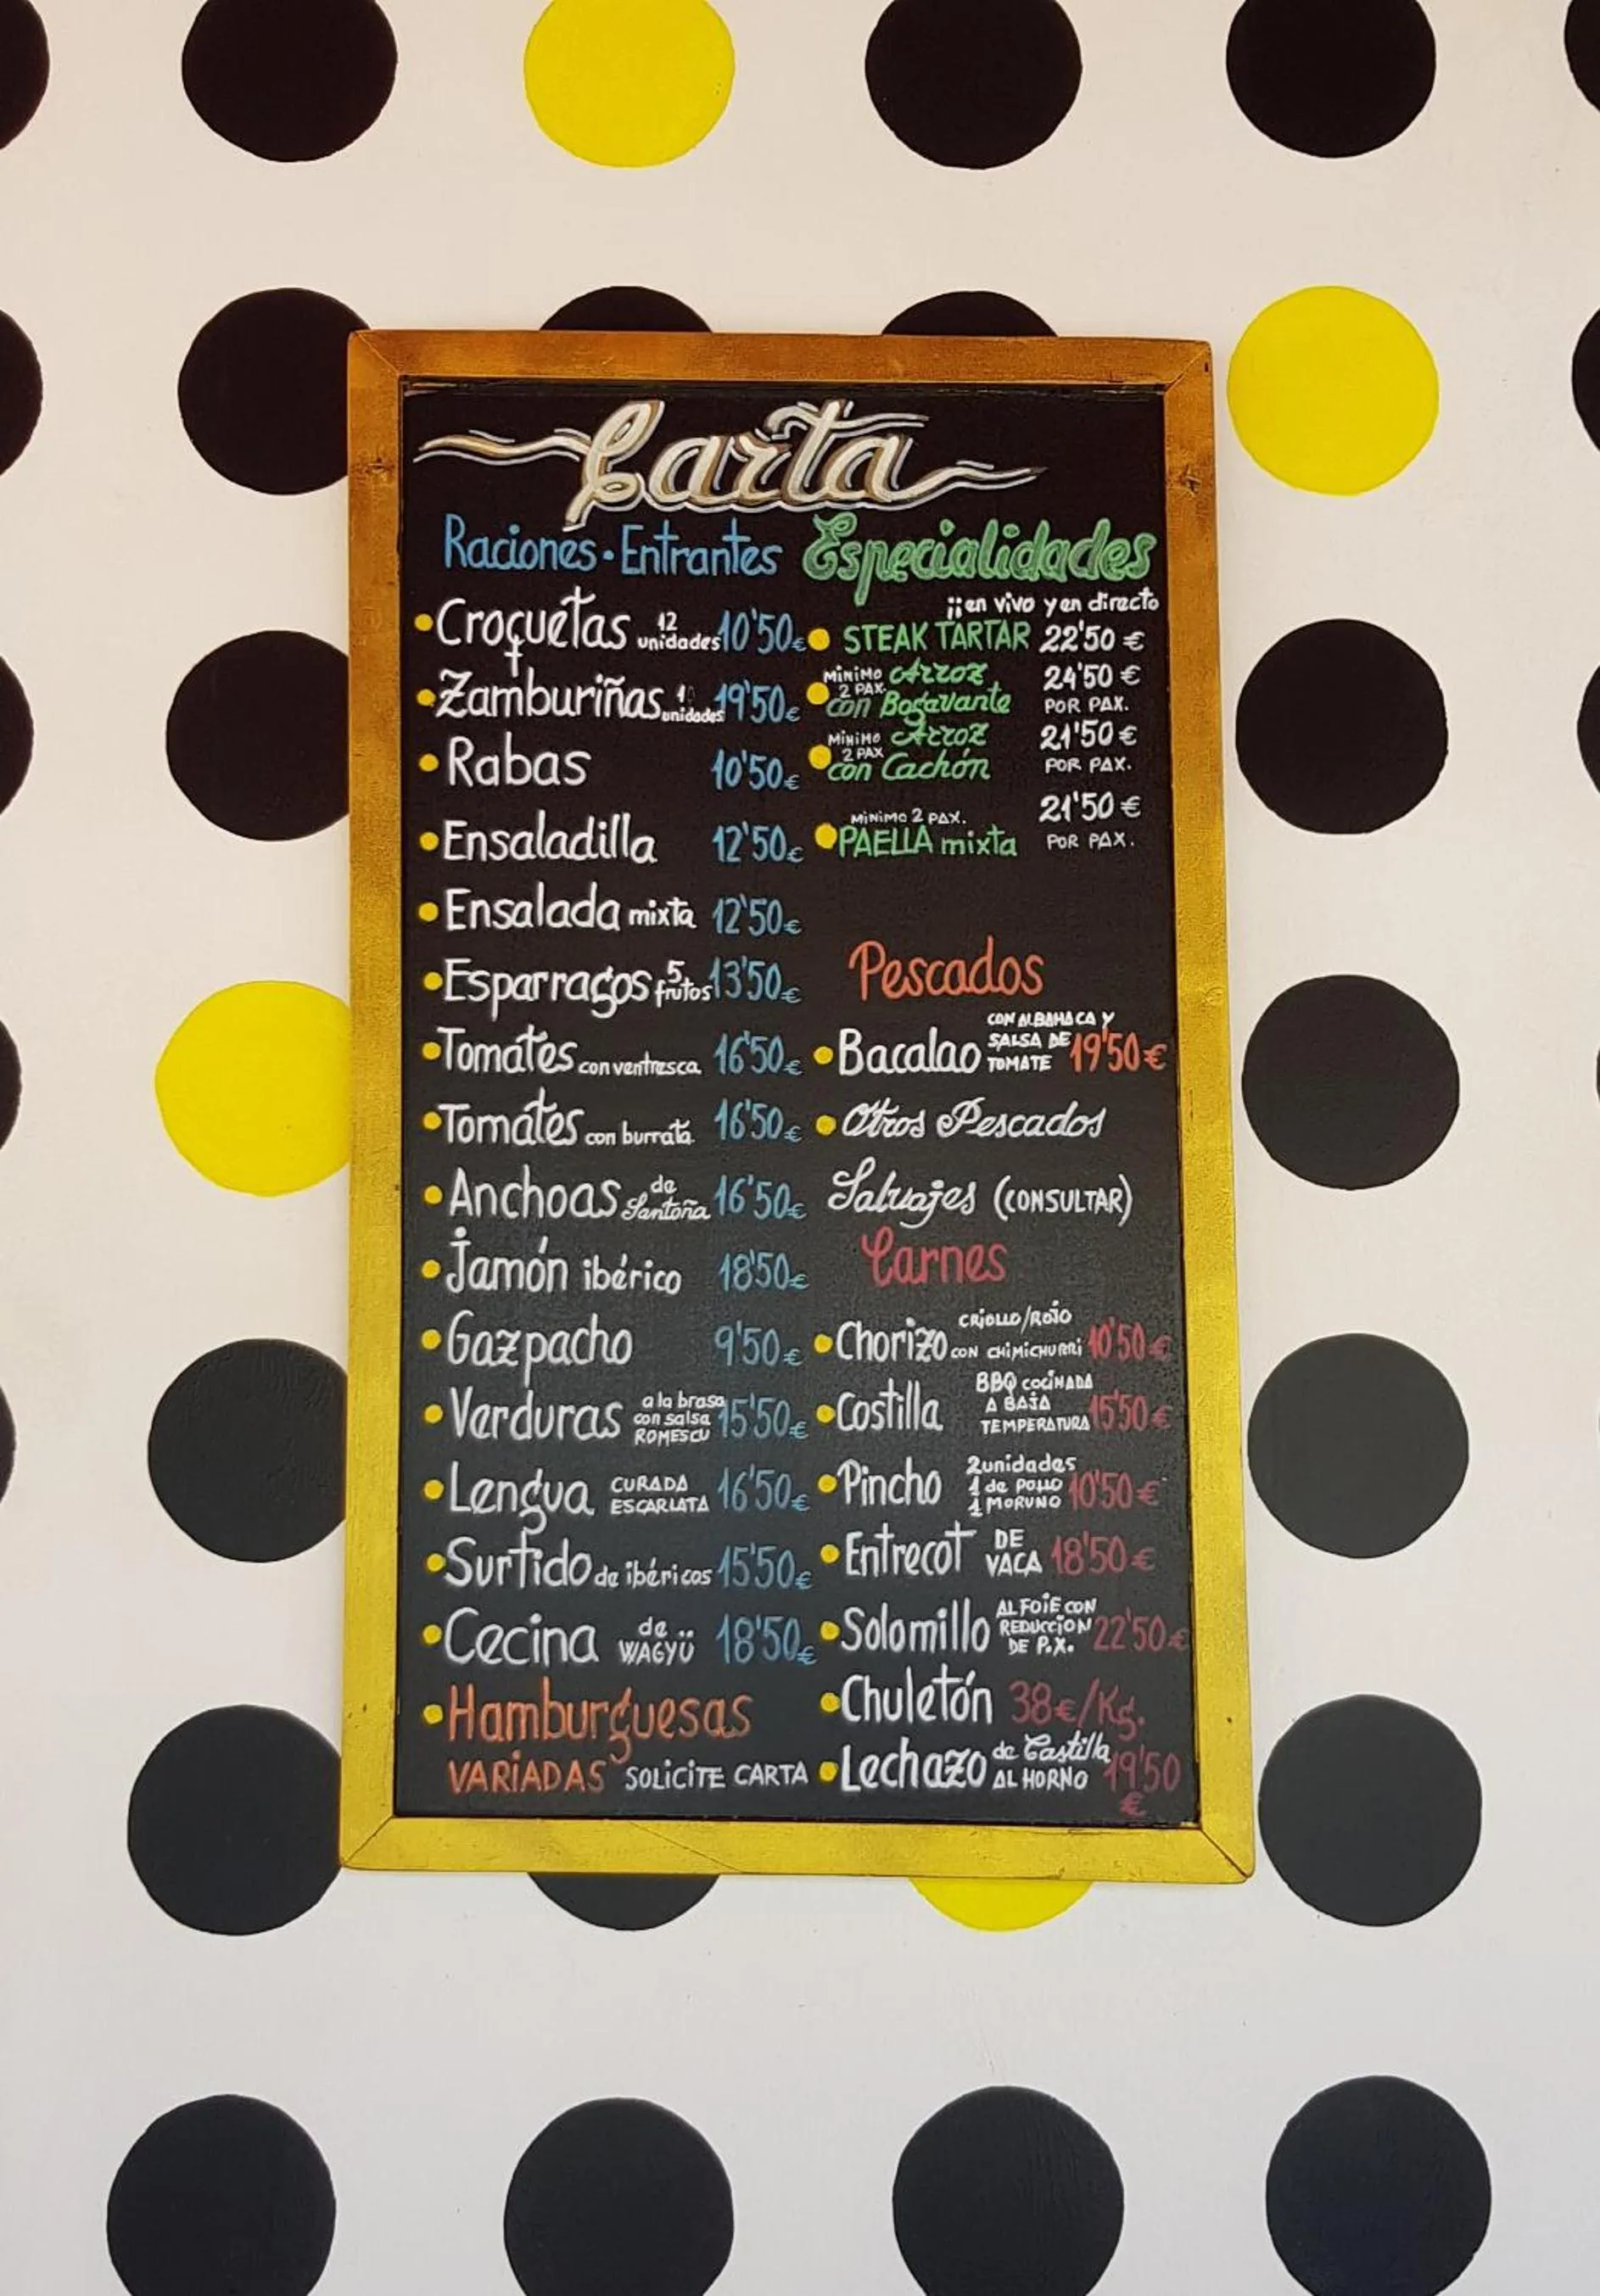 Carta
Raciones · Entrantes
Croquetas 12 unidades 10'50€
Zamburiñas unidades 19'50€
Rabas 10'50€
Ensaladilla 12'50€
Ensalada mixta 12'50€
Esparragos 5 frutos 13'50€
Tomates con ventresca 16'50€
Tomates con burrata 16'50€
Anchoas de Santoña 16'50€
Jamón ibérico 18'50€
Gazpacho 9'50€
Verduras a la brasa con salsa ROMESCU 15'50€
Lengua CURADA ESCARLATA 16'50€
Surtido de ibéricos 15'50€
Cecina de WAGYÜ 18'50€
Hamburguesas
VARIADAS SOLICITE CARTA
Especialidades
¡¡en vivo y en directo
STEAK TARTAR 22'50 €
MINIMO 2 PAX. Arroz con Bogavante 24'50 € POR PAX.
MINIMO 2 PAX Arroz con Cachón 21'50 € POR PAX.
MINIMO 2 PAX. PAELLA mixta 21'50 € POR PAX.
Pescados
Bacalao CON ALBAHACA Y SALSA DE TOMATE 19'50 €
Otros Pescados
Salvajes (CONSULTAR)
Carnes
Chorizo CRIOLLO/ROJO CON CHIMICHURRI 10'50 €
Costilla BBQ COCINADA A BAJA TEMPERATURA 15'50 €
Pincho 2 unidades 1 de POLLO 1 MORUNO 10'50 €
Entrecot DE VACA 18'50 €
Solomillo AL FOIE CON REDUCCIÓN DE P.X. 22'50 €
Chuletón 38€/Kg.
Lechazo de Castilla AL HORNO 19'50 €